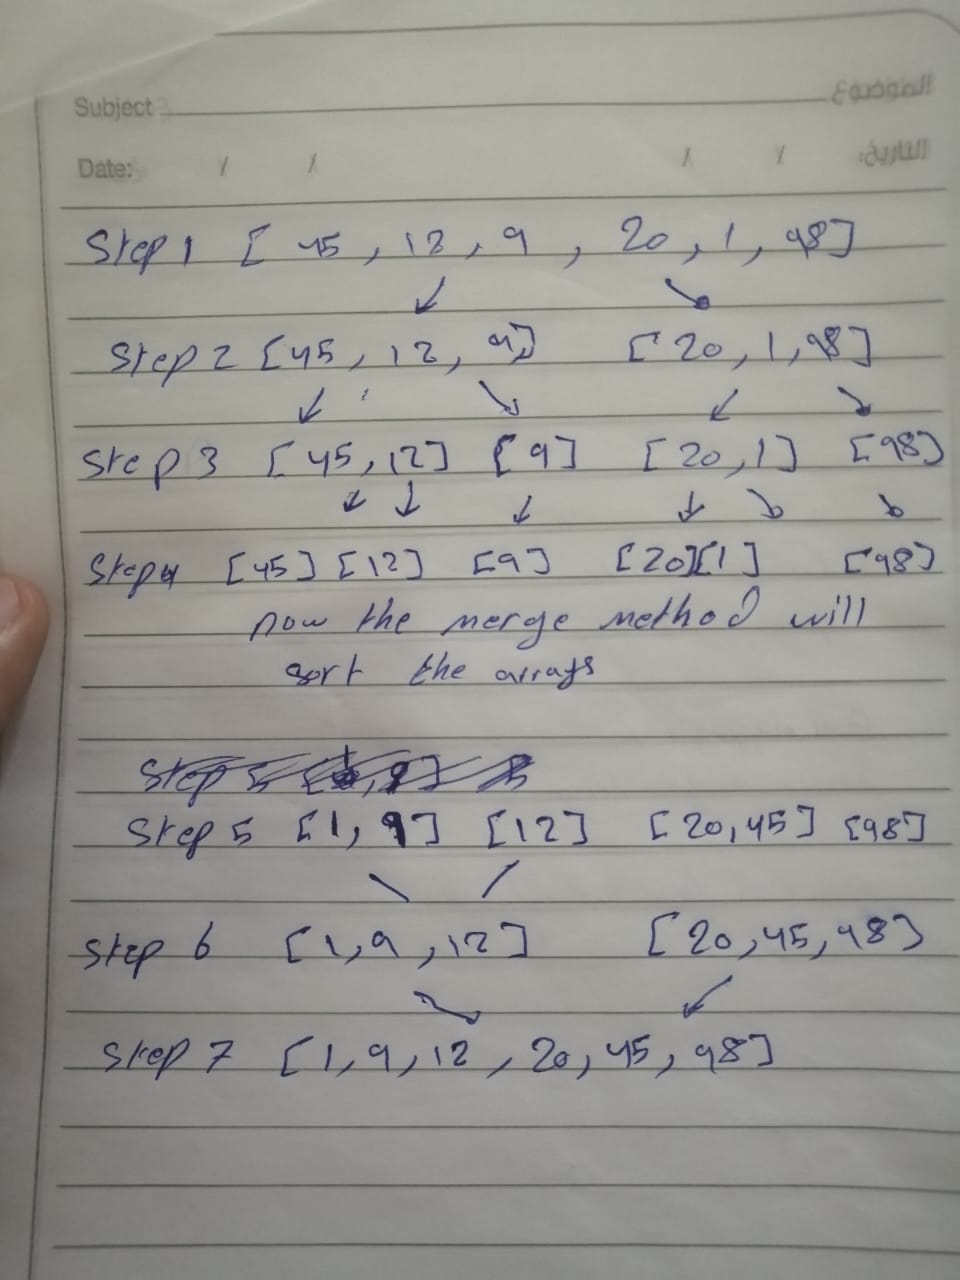 Subject الموضوع
Date: / / / / التاريخ:
Step 1 [ 45 , 12 , 9 , 20 , 1 , 98 ]
Step 2 [45 , 12 , 9] [ 20 , 1 , 98 ]
Step 3 [ 45 , 12 ] [ 9 ] [ 20 , 1 ] [98]
Step 4 [45] [12] [9] [20][1] [98]
now the merge method will
sort the arrays
Step 5 [1, 9] [12] [20,45] [98]
Step 6 [1,9 ,12] [20,45,98]
Step 7 [1,9,12 ,20,45, 98]